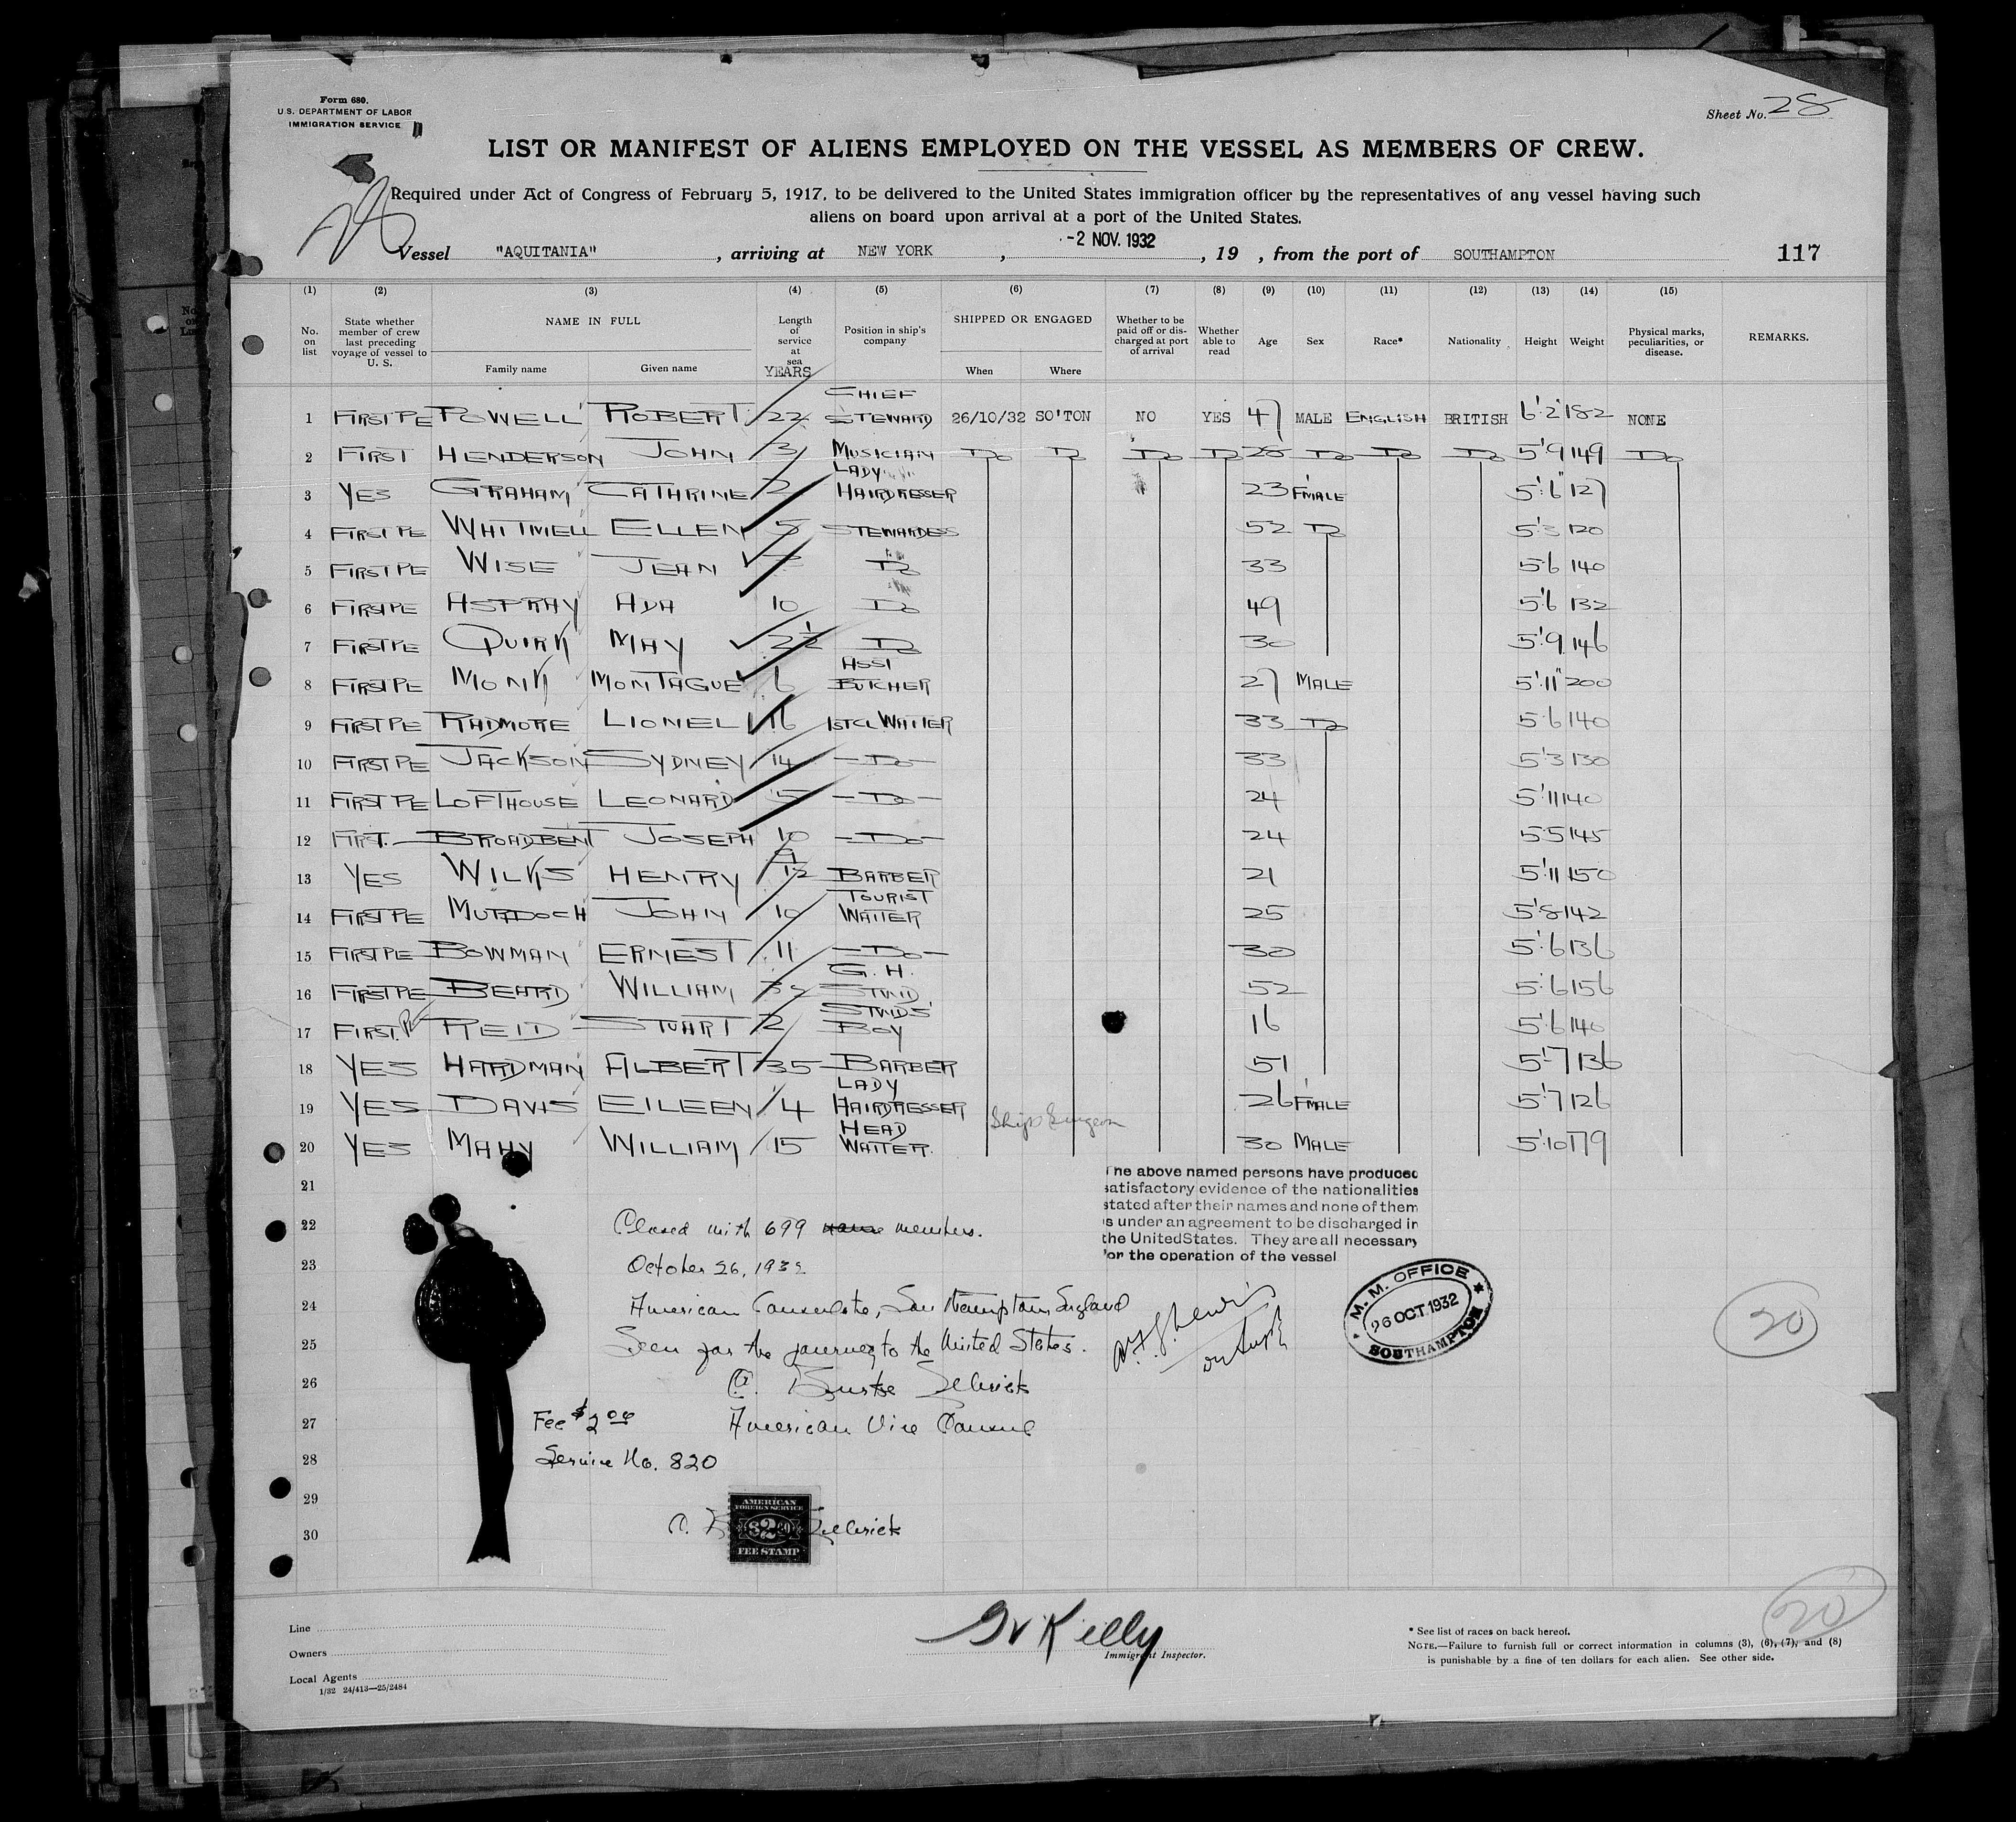 Form 680.
U.S. DEPARTMENT OF LABOR
IMMIGRATION SERVICE
Sheet No. 28
LIST OR MANIFEST OF ALIENS EMPLOYED ON THE VESSEL AS MEMBERS OF CREW.
Required under Act of Congress of February 5, 1917, to be delivered to the United States immigration officer by the representatives of any vessel having such
aliens on board upon arrival at a port of the United States.
Vessel "AQUITANIA", arriving at NEW YORK, -2 NOV. 1932, 19 , from the port of SOUTHAMPTON 117
(1) (2) (3) (4) (5) (6) (7) (8) (9) (10) (11) (12) (13) (14) (15)
No. on list State whether member of crew last preceding voyage of vessel to U. S. NAME IN FULL Family name Given name Length of service at sea YEARS Position in ship's company SHIPPED OR ENGAGED When Where Whether to be paid off or discharged at port of arrival Whether able to read Age Sex Race* Nationality Height Weight Physical marks, peculiarities, or disease. REMARKS.
1 FIRST PE POWELL ROBERT 22 CHIEF STEWARD 26/10/32 SO'TON NO YES 47 MALE ENGLISH BRITISH 6'2" 182 NONE
2 FIRST HENDERSON JOHN 3 MUSICIAN Do Do Do Do 28 Do Do Do 5'9 149 Do
3 YES GRAHAM CATHRINE 2 LADY HAIRDRESSER 23 F'MALE 5'6" 127
4 FIRST PE WHITWELL ELLEN 5 STEWARDESS 52 Do 5'3 120
5 FIRST PE WISE JEAN Do 33 5'6 140
6 FIRST PE ASPRAY ADA 10 Do 49 5'6 132
7 FIRST PE QUIRK MAY 2½ Do 30 5'9 146
8 FIRST PE MONK MONTAGUE 6 ASST BUTCHER 27 MALE 5'11" 200
9 FIRST PE RADMORE LIONEL 16 1ST CL WAITER 33 Do 5'6 140
10 FIRST PE JACKSON SYDNEY 14 -Do- 33 5'3 130
11 FIRST PE LOFTHOUSE LEONARD 5 -Do- 24 5'11 140
12 FIRST. BROADBENT JOSEPH 10 -Do- 24 5'5 145
13 YES WILKS HENRY 9/12 BARBER 21 5'11 150
14 FIRST PE MURDOCH JOHN 10 TOURIST WAITER 25 5'8 142
15 FIRST PE BOWMAN ERNEST 11 -Do- 30 5'6 136
16 FIRST PE BEARD WILLIAM G. H. STWD 52 5'6 156
17 FIRST. PE REID STUART 2 STWDS' BOY 16 5'6 140
18 YES HARDMAN ALBERT 35 BARBER 51 5'7 136
19 YES DAVIS EILEEN 4 LADY HAIRDRESSER 26 F'MALE 5'7 126
Ship's Surgeon
20 YES MAHY WILLIAM 15 HEAD WAITER. 30 MALE 5'10 179
The above named persons have produced
satisfactory evidence of the nationalities
stated after their names and none of them
is under an agreement to be discharged in
the United States. They are all necessary
for the operation of the vessel
21
22 Closed with 699 members.
23 October 26, 1932
24 American Consulate, Southampton, England
25 Seen for the journey to the United States.
M. M. OFFICE
26 OCT 1932
SOUTHAMPTON
20
26
27 Fee $2.00 American Vice Consul
28 Service No. 820
29
30
AMERICAN
FOREIGN SERVICE
$2.00
FEE STAMP
Line
Owners
Local Agents
1/32 24/413—25/2484
Kelly
Immigrant Inspector.
20
* See list of races on back hereof.
NOTE.—Failure to furnish full or correct information in columns (3), (6), (7), and (8)
is punishable by a fine of ten dollars for each alien. See other side.